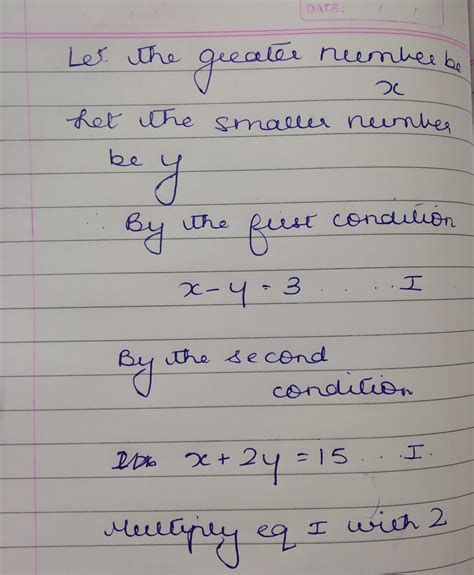 DATE: / /
Let the greater number be
x
Let the smaller number
be y
By the first condition
x - y = 3 .... I
By the second
condition
x + 2y = 15 ... I.
Multiply eq I with 2